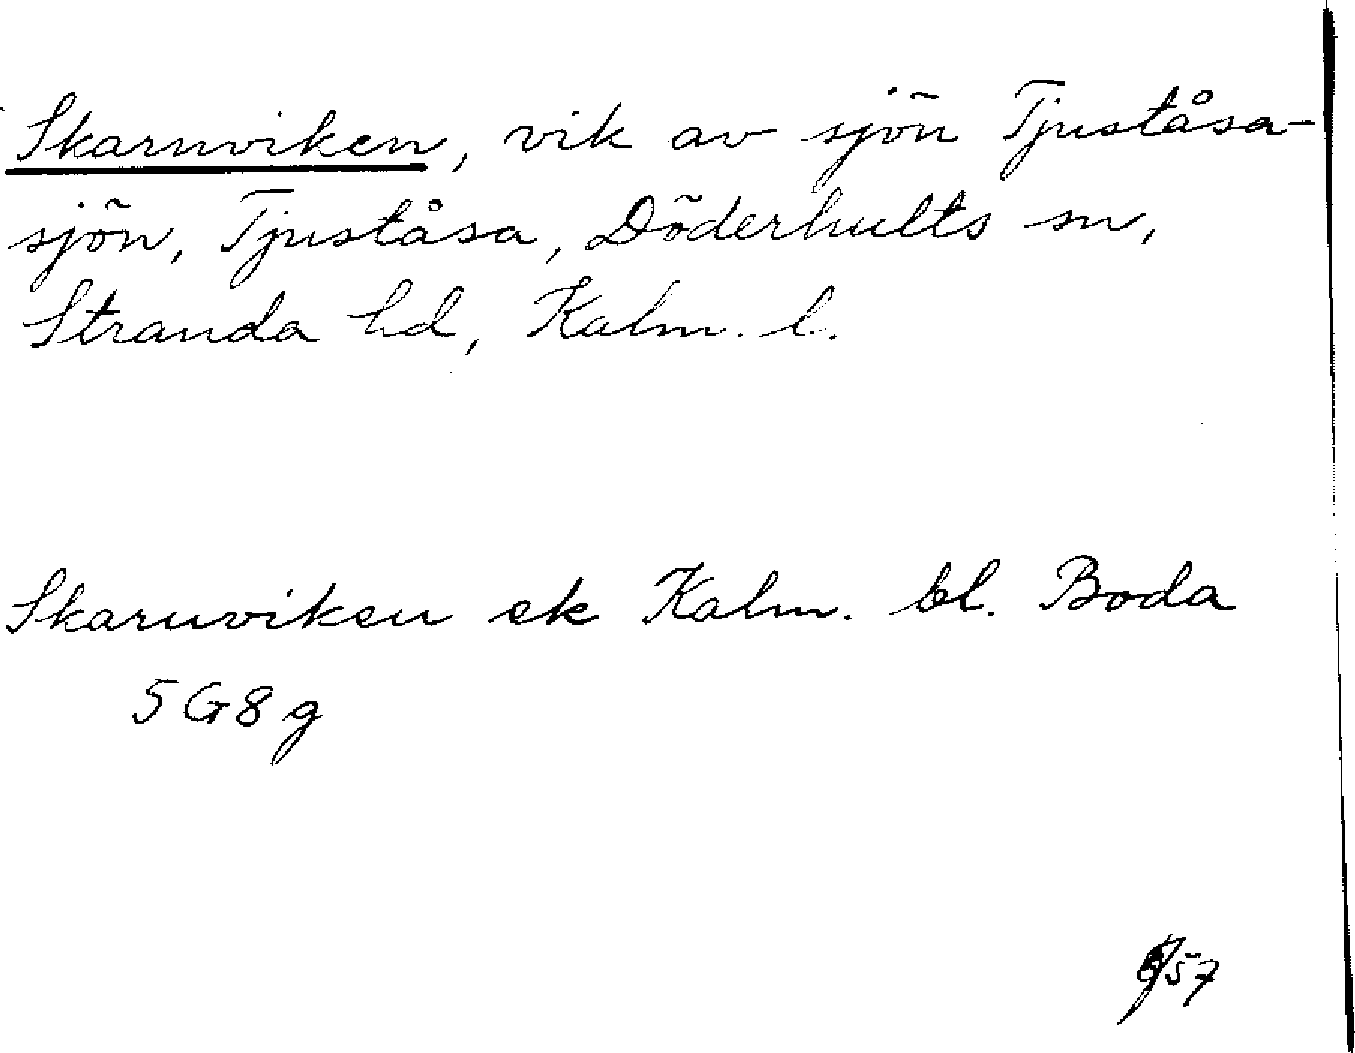 Skarnviken, vik av sjön Tjuståsa-
sjön, Tjuståsa, Döderhults sn,
Stranda hd, Kalm. l.
Skarnviken ek Kalm. bl. Boda
5G8g